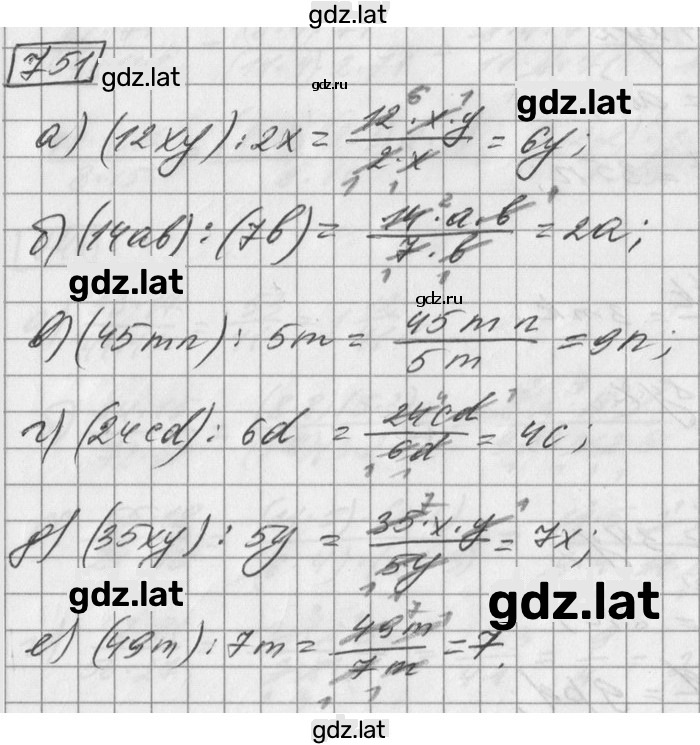 gdz.lat
751
gdz.lat
gdz.ru
gdz.lat
а) (12xy) : 2x = 12·x·y / 2·x = 6y;
б) (14ab) : (7b) = 14·a·b / 7·b = 2a;
gdz.lat
gdz.ru
в) (45mn) : 5m = 45mn / 5m = 9n;
г) (24cd) : 6d = 24cd / 6d = 4c;
д) (35xy) : 5y = 35·x·y / 5y = 7x;
gdz.lat
gdz.lat
е) (49m) : 7m = 49m / 7m = 7.
gdz.lat